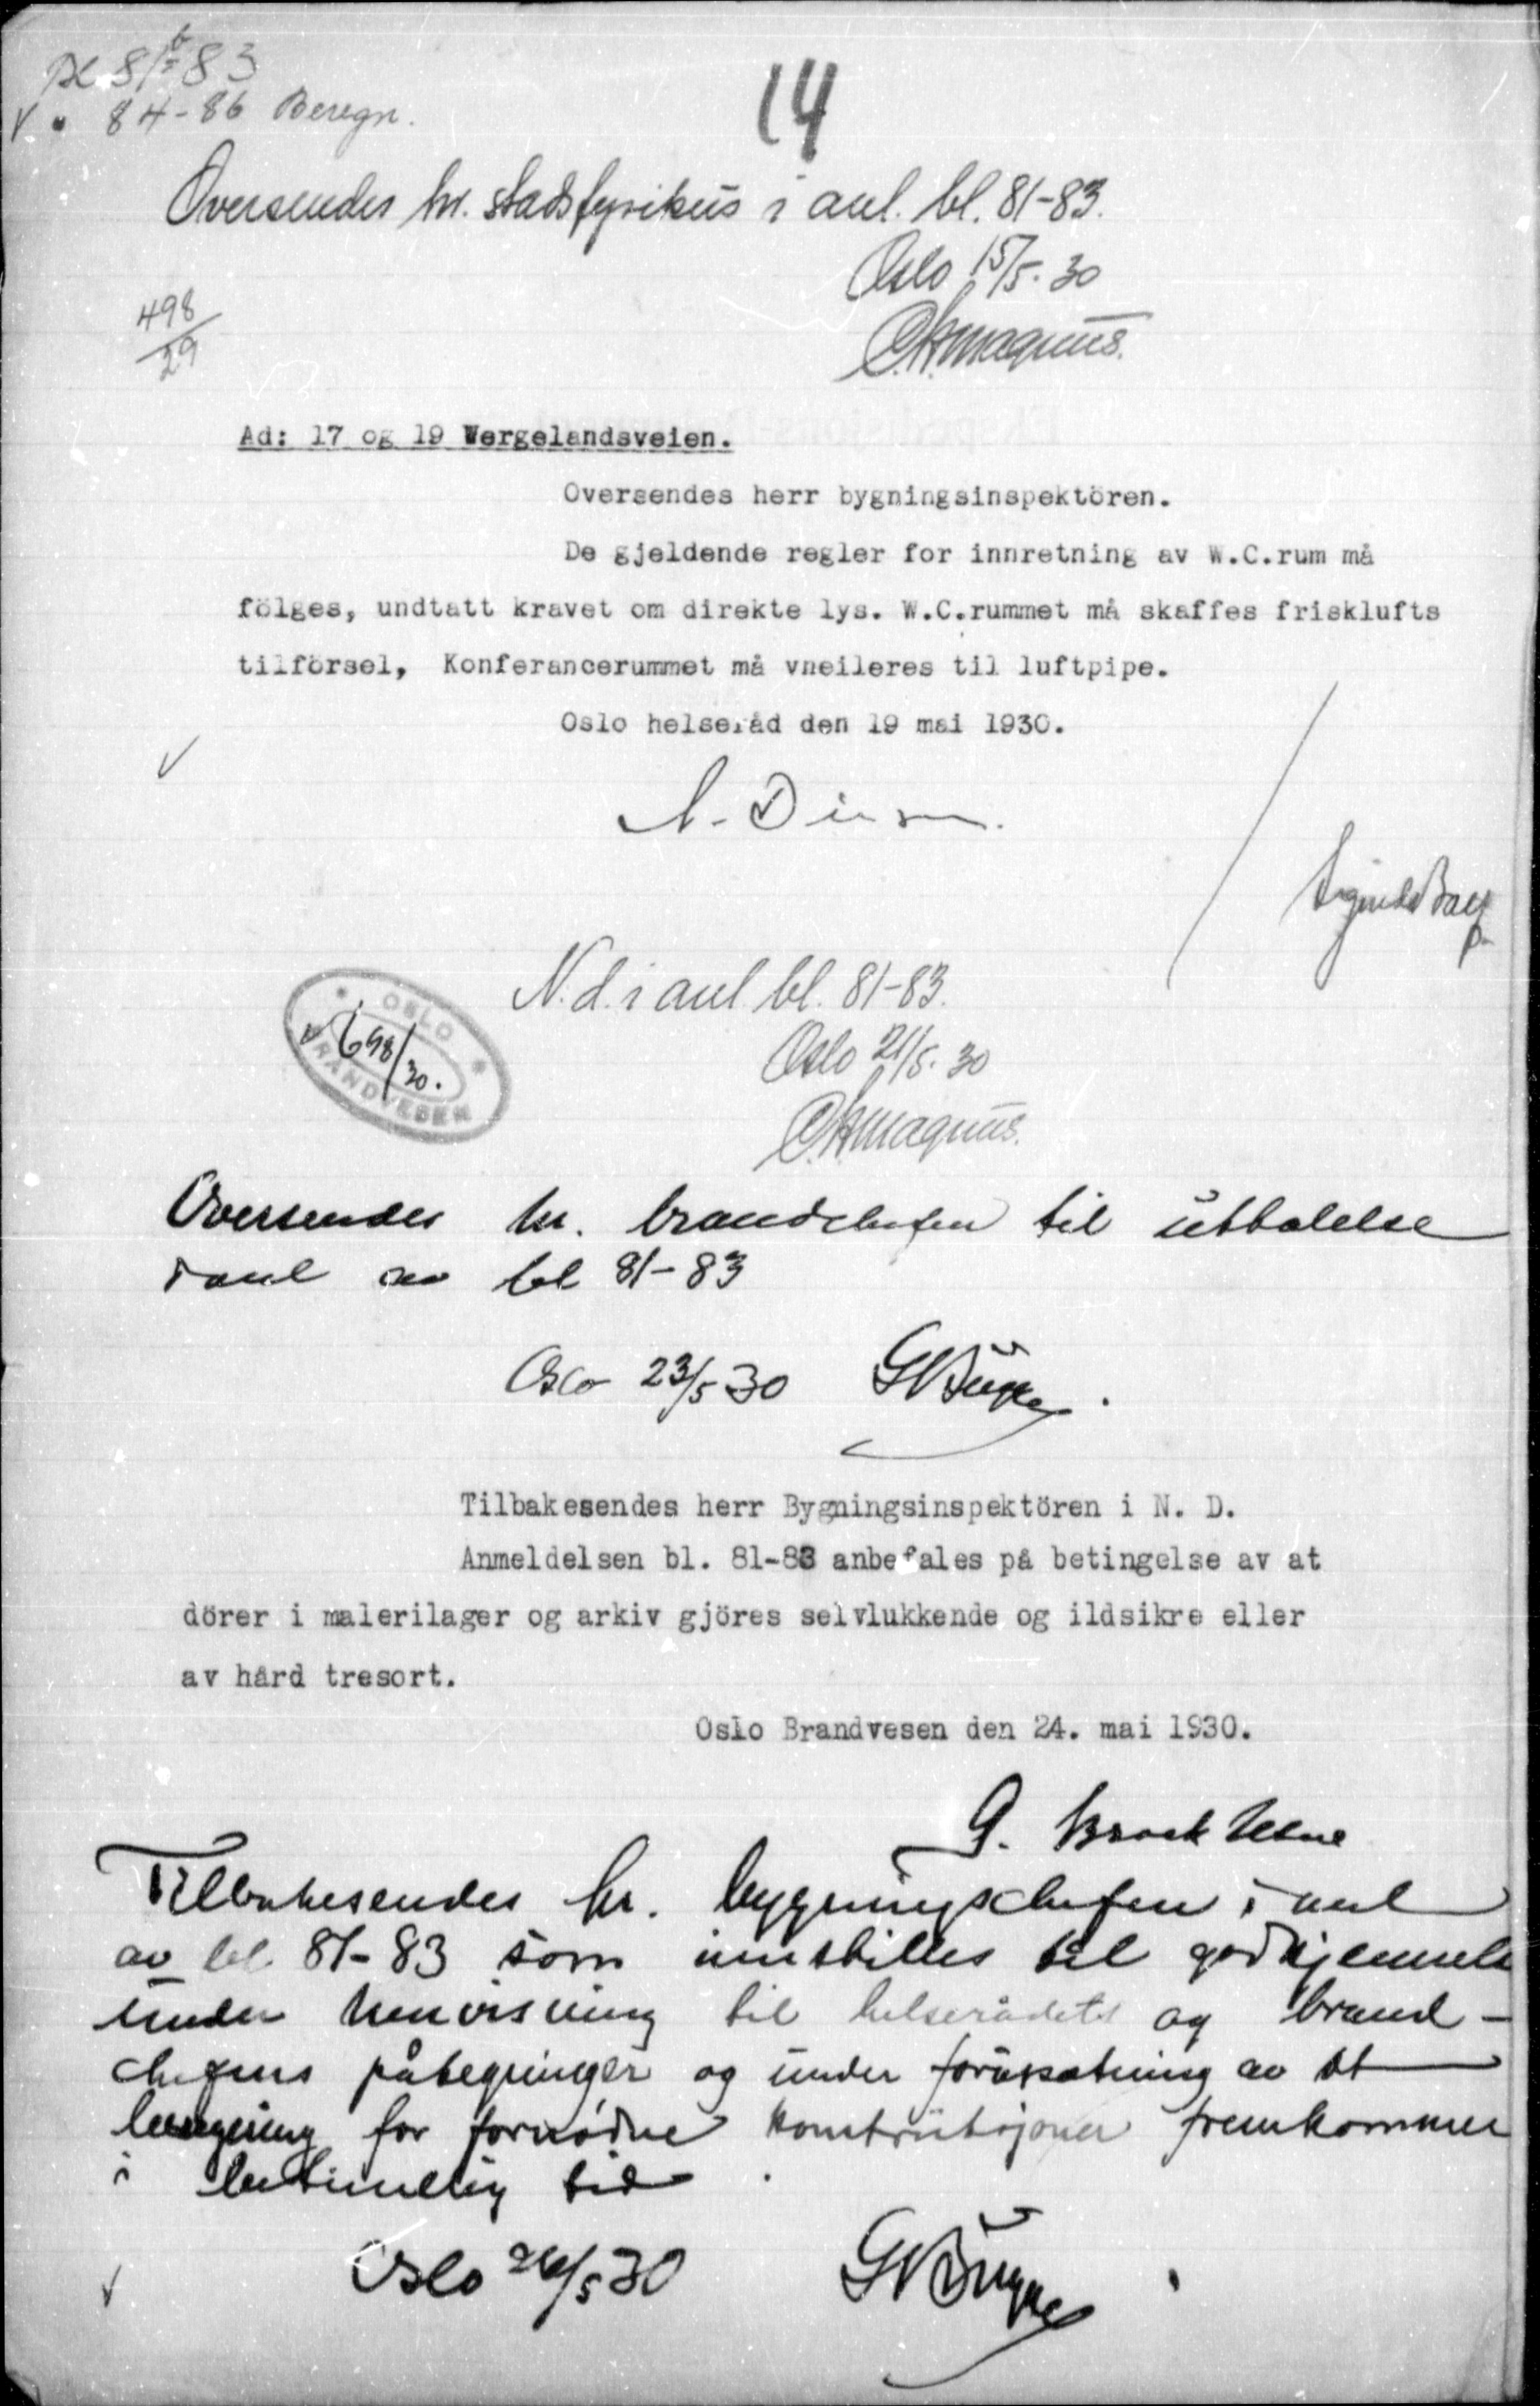 Bl 81-83
V " 84-86 Beregn.
14
Oversendes hr. stadsfysikus i anl. bl. 81-83.
Oslo 15/5. 30
Magnus.
498/29
Ad: 17 og 19 Wergelandsveien.
Oversendes herr bygningsinspektören.
De gjeldende regler for innretning av W.C.rum må
fölges, undtatt kravet om direkte lys. W.C.rummet må skaffes frisklufts
tilförsel, Konferancerummet må vneileres til luftpipe.
Oslo helseråd den 19 mai 1930.
N.d. i anl. bl. 81-83.
Oslo 21/5. 30
Magnus.
OSLO BRANDVESEN
698/30.
Oversendes hr. brandchefen til uttalelse
i anl av bl 81-83
Oslo 23/5 30
Tilbakesendes herr Bygningsinspektören i N. D.
Anmeldelsen bl. 81-83 anbefales på betingelse av at
dörer i malerilager og arkiv gjöres selvlukkende og ildsikre eller
av hård tresort.
Oslo Brandvesen den 24. mai 1930.
G. Brock Utne
Tilbakesendes hr. bygningschefen i anl
av bl. 81-83 som innstilles til godkjennelse
under henvisning til helserådets og brand-
chefens påtegninger og under forutsetning av at
beregning for fornødne konstruksjoner fremkommer
i betimelig tid.
Oslo 26/5 30